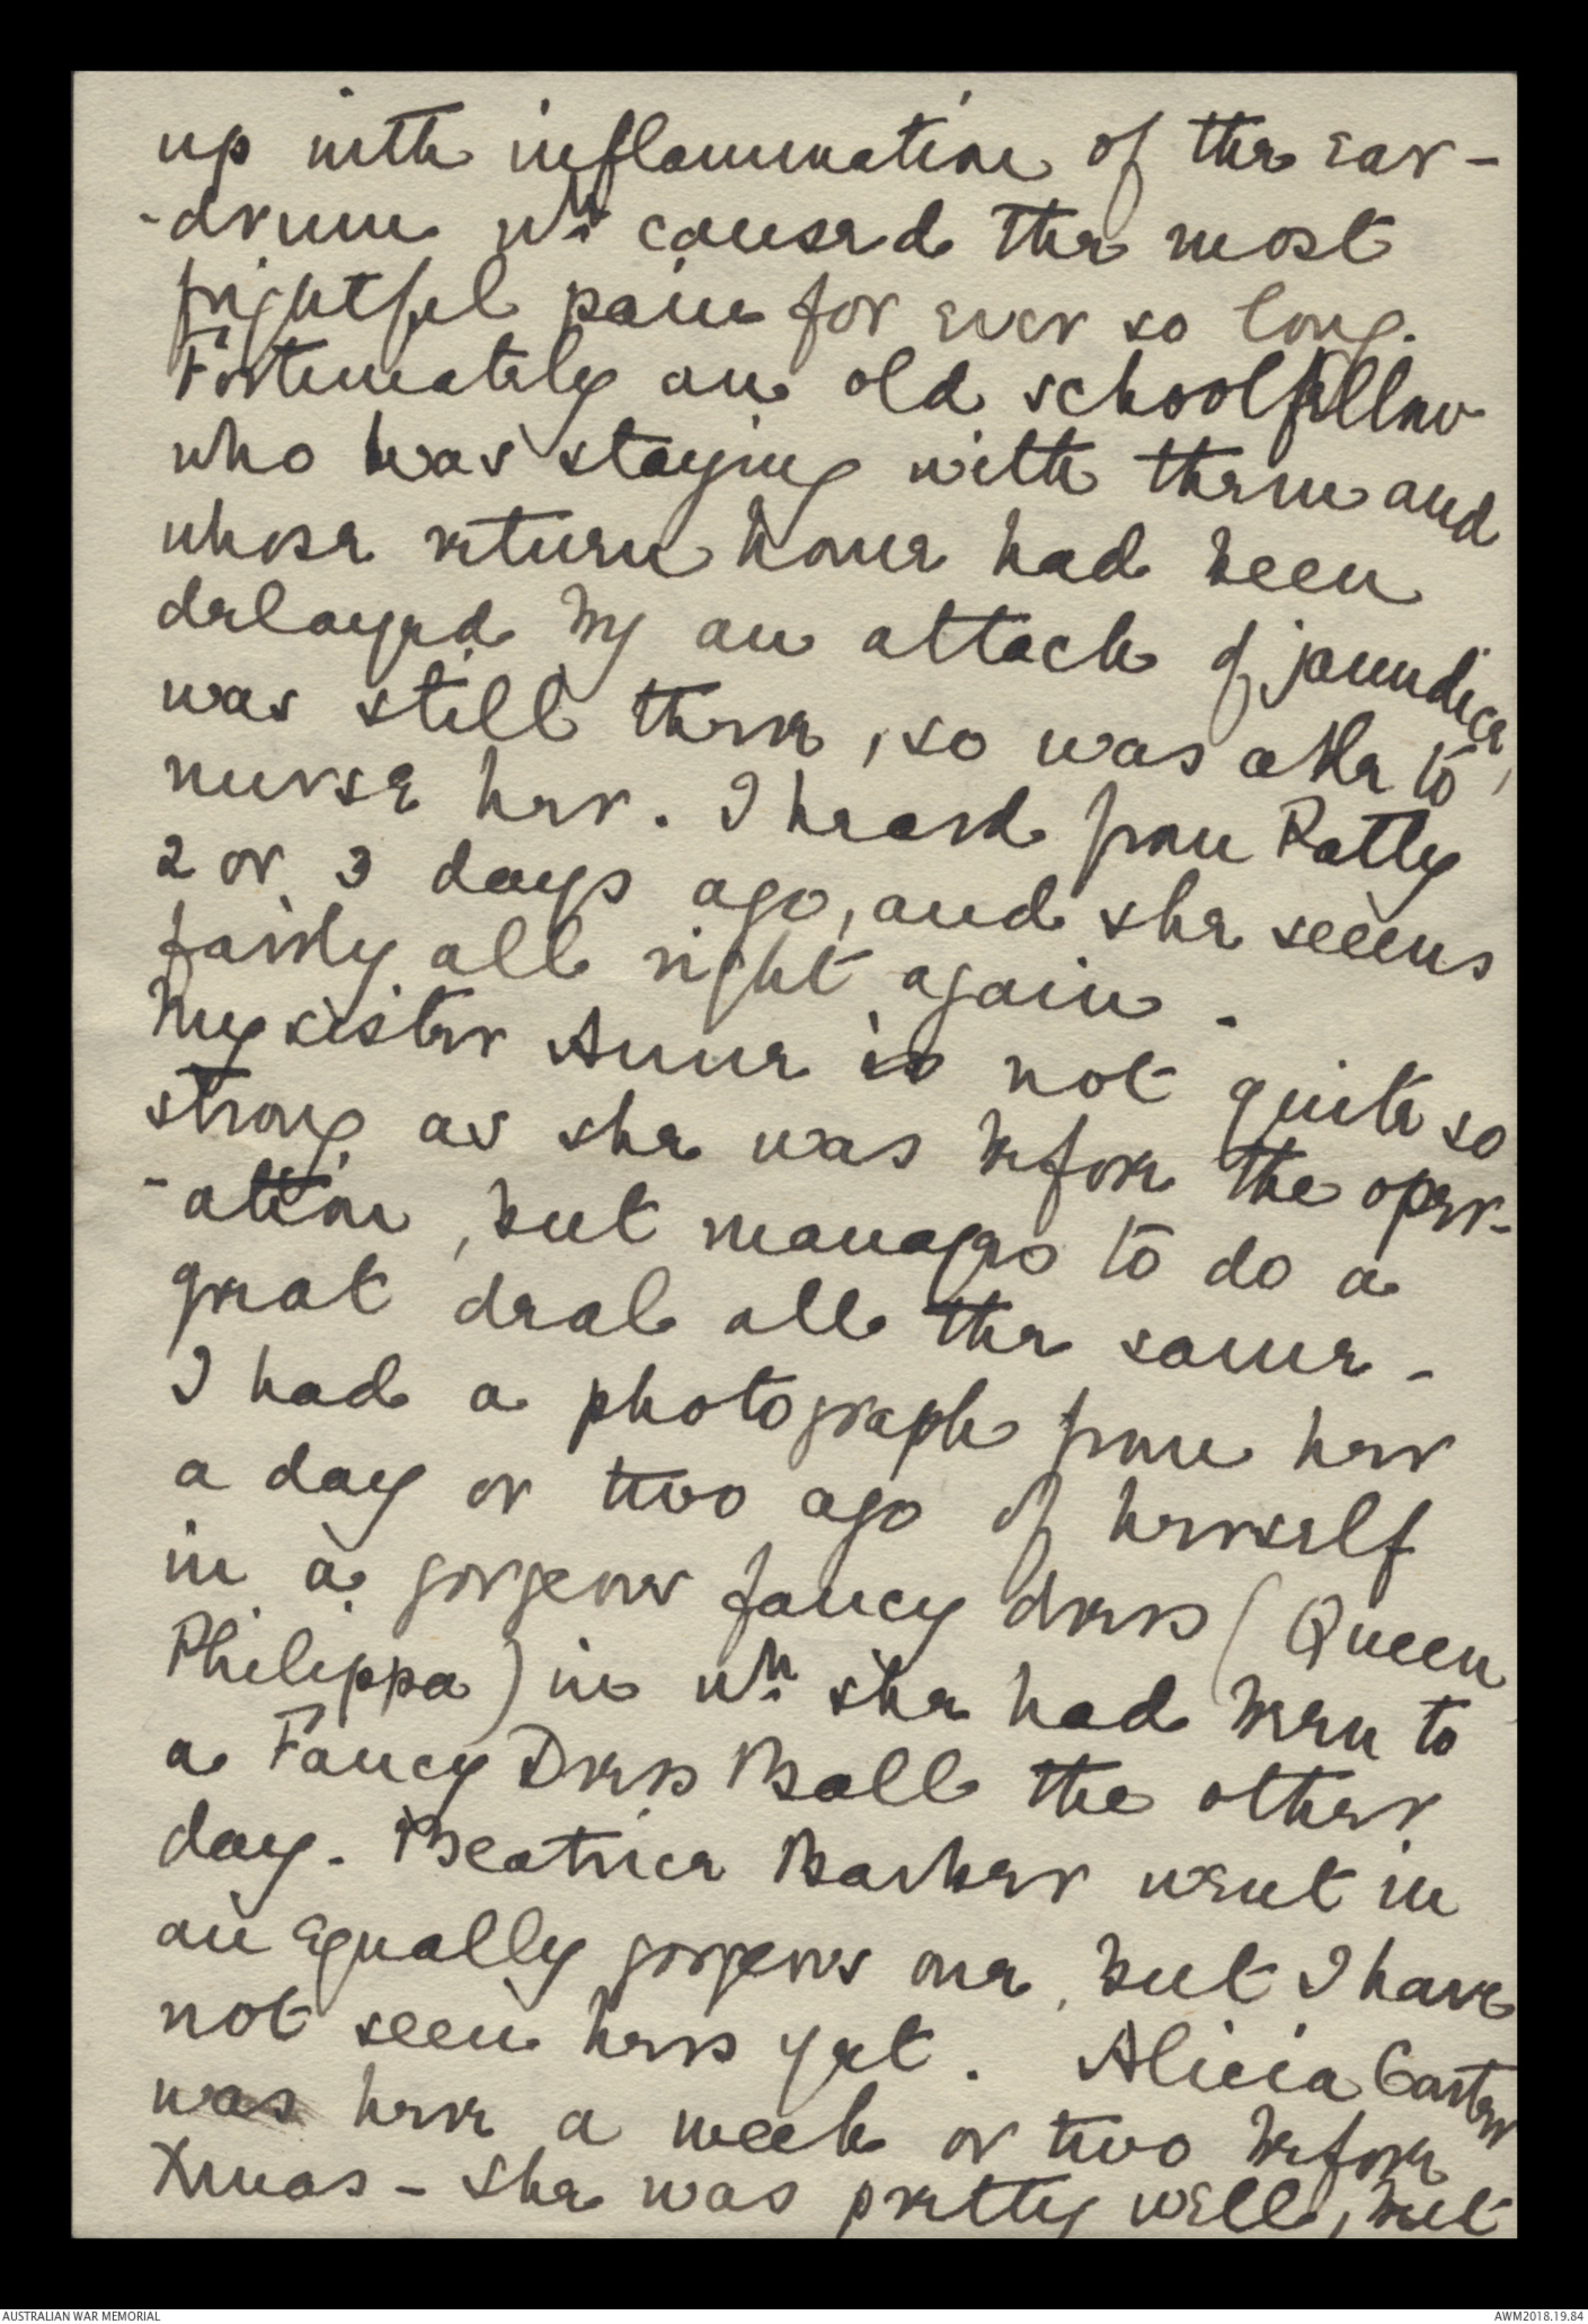 up with inflammation of the ear-
-drum wh. caused the most
frightful pain for ever so long.
Fortunately an old schoolfellow
who was staying with them and
whose return home had been
delayed by an attack of jaundice,
was still there, so was able to
nurse her. I heard from Patty
2 or 3 days ago, and she seems
fairly all right again -
My sister Anne is not quite so
strong as she was before the oper-
-ation, but manages to do a
great deal all the same -
I had a photograph from her
a day or two ago of herself
in a gorgeous fancy dress (Queen
Philippa) in wh. she had been to
a Fancy Dress Ball the other
day. Beatrice Barber went in
an equally gorgeous one, but I have
not seen hers yet. Alicia Carter
was here a week or two before
Xmas - She was pretty well, but
AUSTRALIAN WAR MEMORIAL
AWM2018.19.84